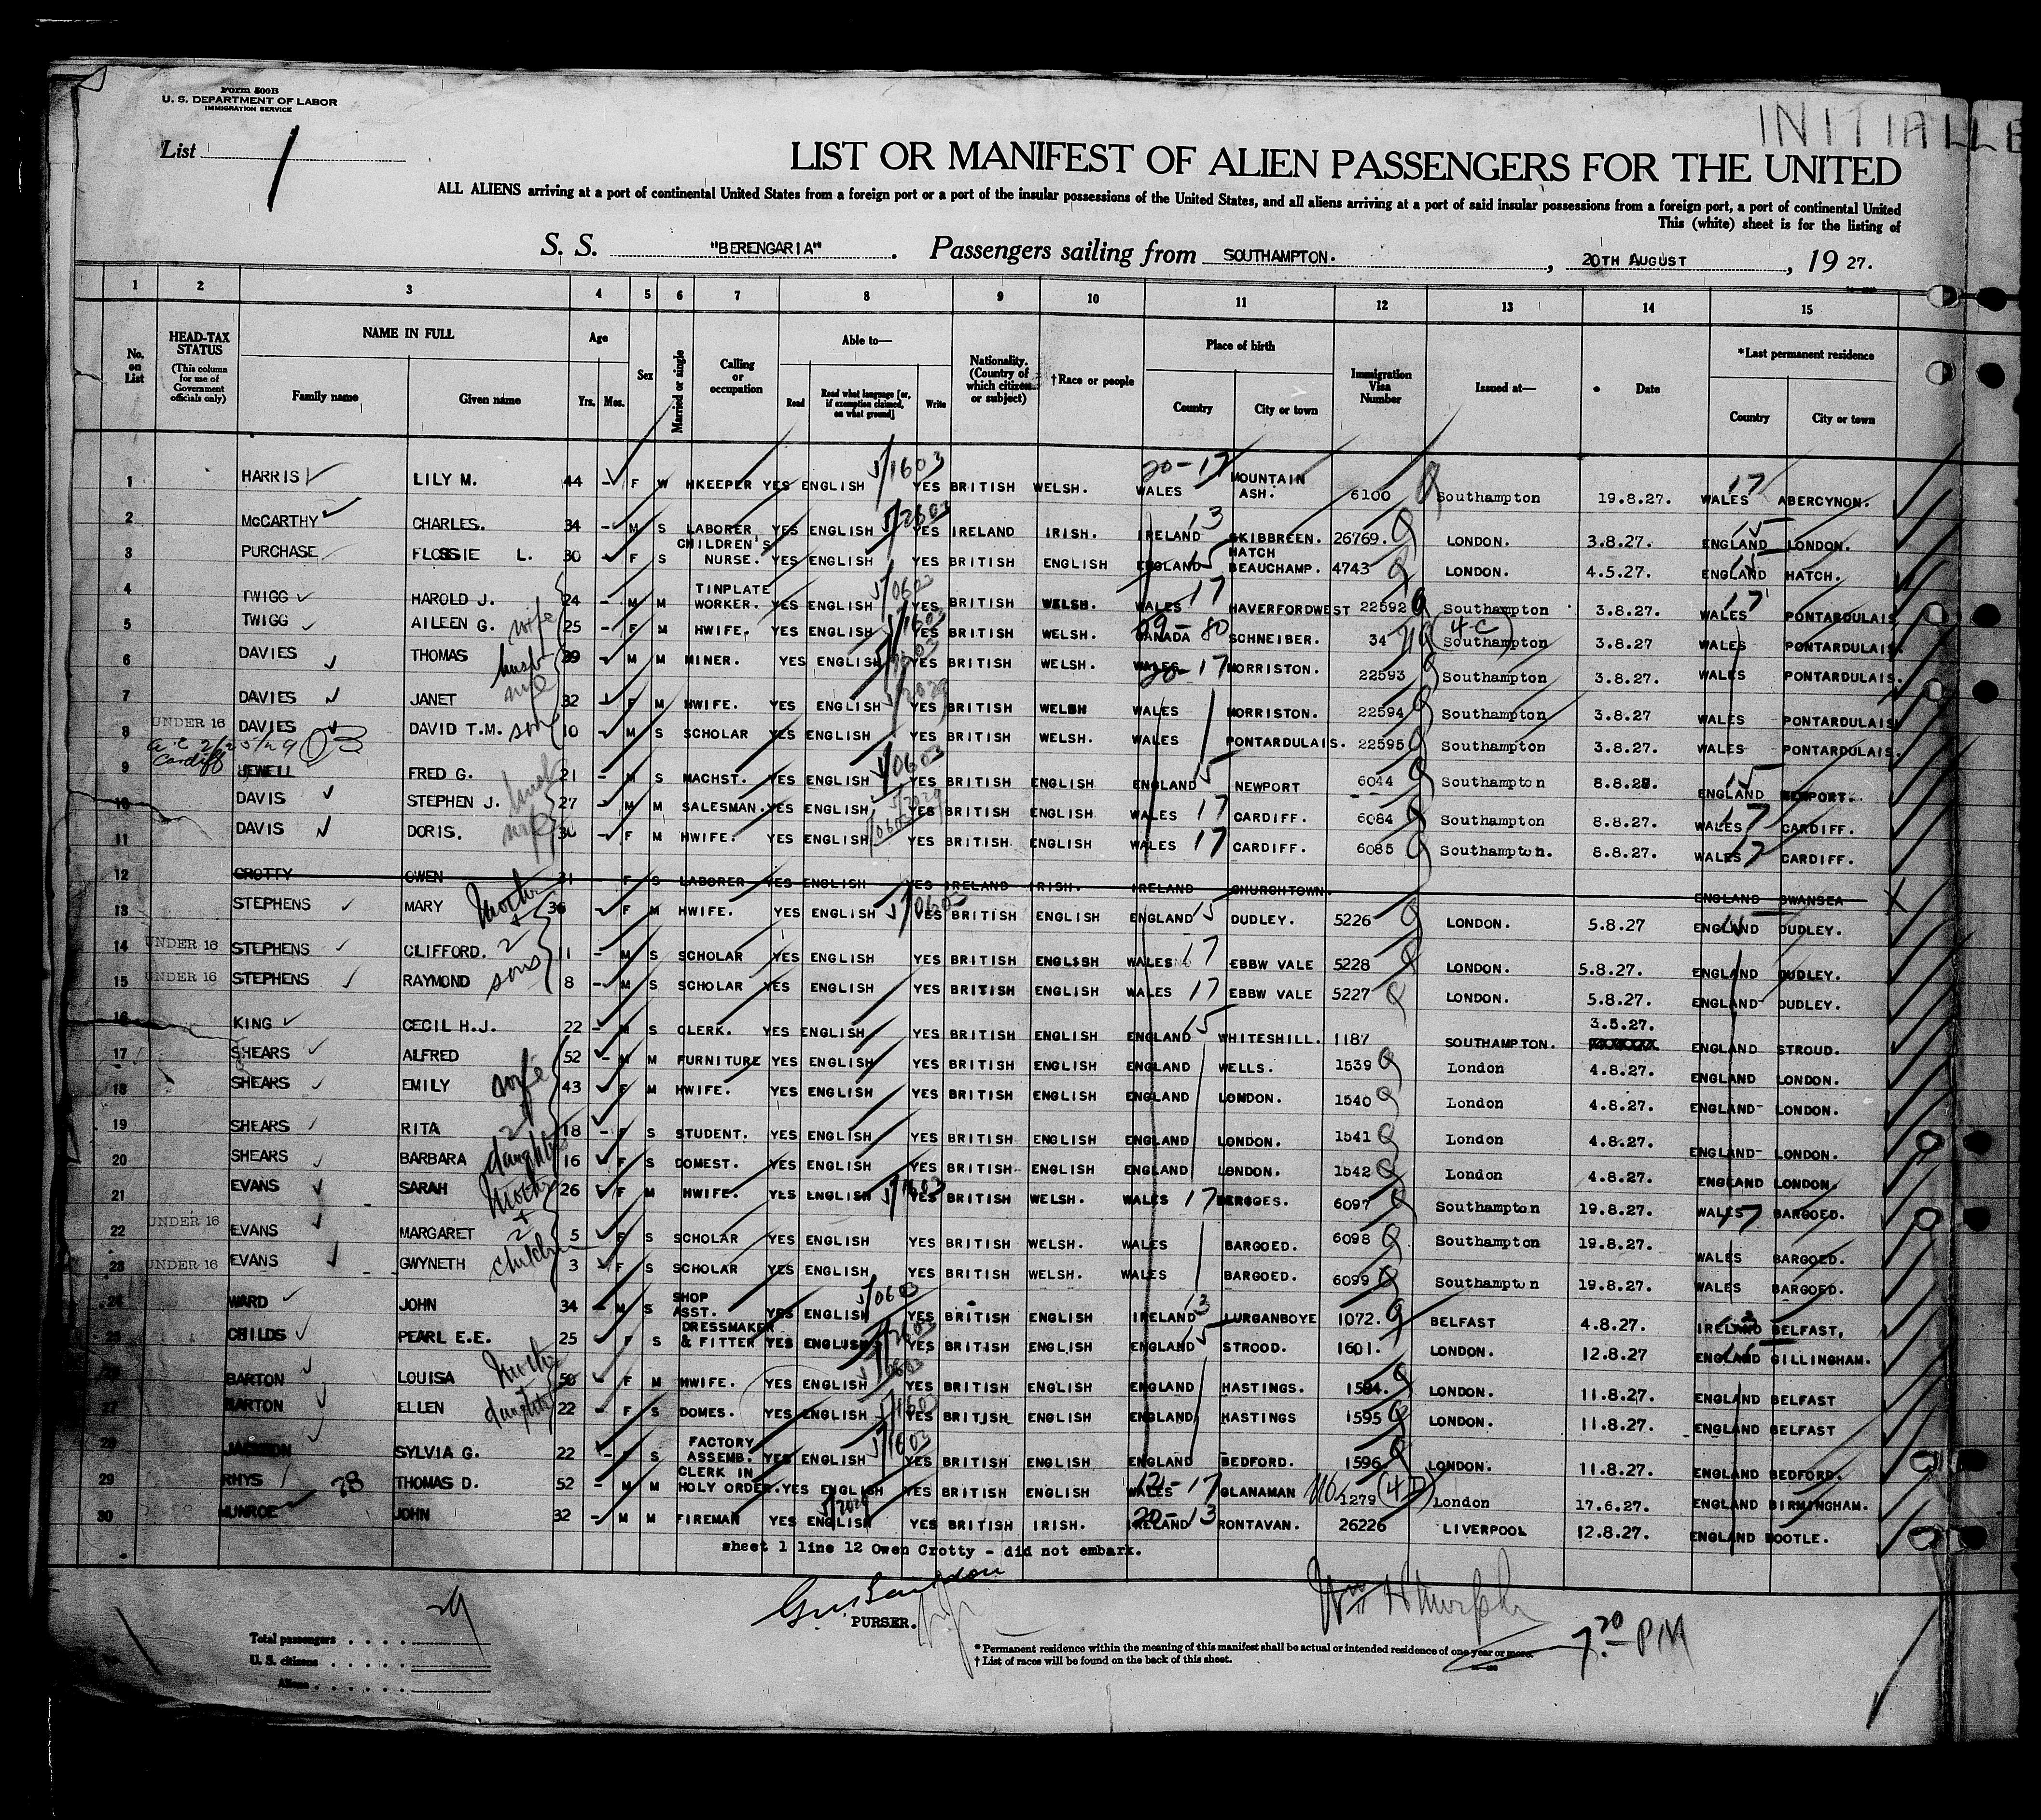 Form 500B
U. S. DEPARTMENT OF LABOR
IMMIGRATION SERVICE
INITIALLE
List 1
LIST OR MANIFEST OF ALIEN PASSENGERS FOR THE UNITED
ALL ALIENS arriving at a port of continental United States from a foreign port or a port of the insular possessions of the United States, and all aliens arriving at a port of said insular possessions from a foreign port, a port of continental United
This (white) sheet is for the listing of
S. S. "BERENGARIA". Passengers sailing from SOUTHAMPTON. , 20TH AUGUST , 19 27.
1 2 3 4 5 6 7 8 9 10 11 12 13 14 15
No. on List
HEAD-TAX STATUS (This column for use of Government officials only)
NAME IN FULL
Family name Given name
Age
Yrs. Mos.
Sex
Married or single
Calling or occupation
Able to—
Read Read what language [or, if exemption claimed, on what ground] Write
Nationality. (Country of which citizen or subject)
†Race or people
Place of birth
Country City or town
Immigration Visa Number
Issued at—
Date
*Last permanent residence
Country City or town
1 HARRIS LILY M. 44 - F W HKEEPER YES ENGLISH 5/1603 YES BRITISH WELSH. 20-17 WALES MOUNTAIN ASH. 6100 Southampton 19.8.27. 17 WALES ABERCYNON.
2 McCARTHY CHARLES. 34 - M S LABORER YES ENGLISH YES IRELAND IRISH. IRELAND 13 SKIBBREEN. 26769. LONDON. 3.8.27. 15 ENGLAND LONDON.
3 PURCHASE FLOSSIE L. 30 - F S CHILDREN'S NURSE. YES ENGLISH YES BRITISH ENGLISH ENGLAND 15 HATCH BEAUCHAMP. 4743 LONDON. 4.5.27. 15 ENGLAND HATCH.
4 TWIGG HAROLD J. 24 - M M TINPLATE WORKER. YES ENGLISH YES BRITISH WELSH. WALES 17 HAVERFORDWEST 22592 Southampton 3.8.27. 17 WALES PONTARDULAIS
5 TWIGG AILEEN G. wife 25 - F M HWIFE. YES ENGLISH 5/1603 YES BRITISH WELSH. CANADA 80 SCHNEIBER. 34 (4-C) Southampton 3.8.27 WALES PONTARDULAIS.
6 DAVIES THOMAS husb 39 - M M MINER. YES ENGLISH YES BRITISH WELSH. WALES 20-17 MORRISTON. 22593 Southampton 3.8.27. WALES PONTARDULAIS.
7 DAVIES JANET wife 32 - F M HWIFE. YES ENGLISH 5/2029 YES BRITISH WELSH WALES MORRISTON. 22594 Southampton 3.8.27 WALES PONTARDULAIS
8 UNDER 16 DAVIES DAVID T.M. son 10 - M S SCHOLAR YES ENGLISH YES BRITISH WELSH. WALES PONTARDULAIS. 22595 Southampton 3.8.27. WALES PONTARDULAIS.
Cardiff
9 JEWELL FRED G. 21 - M S MACHST. YES ENGLISH 5/0603 YES BRITISH ENGLISH ENGLAND 15 NEWPORT 6044 Southampton 8.8.28. 15 ENGLAND NEWPORT.
10 DAVIS STEPHEN J. husb 27 - M M SALESMAN. YES ENGLISH 5/2029 YES BRITISH ENGLISH WALES 17 CARDIFF. 6084 Southampton 8.8.27. 17 WALES CARDIFF.
11 DAVIS DORIS. wife 30 - F M HWIFE. YES ENGLISH YES BRITISH ENGLISH WALES 17 CARDIFF. 6085 Southampton. 8.8.27. 17 WALES CARDIFF.
12 CROTTY OWEN 31 F S LABORER YES ENGLISH YES IRELAND IRISH. IRELAND CHURCHTOWN. ENGLAND SWANSEA X
13 STEPHENS MARY Mother + 36 F M HWIFE. YES ENGLISH 5/0603 YES BRITISH ENGLISH ENGLAND 15 DUDLEY. 5226 LONDON. 5.8.27 15 ENGLAND DUDLEY.
14 UNDER 16 STEPHENS CLIFFORD. 2 11 - M S SCHOLAR YES ENGLISH YES BRITISH ENGLISH WALES 17 EBBW VALE 5228 LONDON. 5.8.27. ENGLAND DUDLEY.
15 UNDER 16 STEPHENS RAYMOND sons 8 - M S SCHOLAR YES ENGLISH YES BRITISH ENGLISH WALES 17 EBBW VALE 5227 LONDON. 5.8.27. ENGLAND DUDLEY.
16 KING CECIL H.J. 22 - M S CLERK. YES ENGLISH YES BRITISH ENGLISH ENGLAND 15 WHITESHILL. 1187 SOUTHAMPTON. 3.5.27. ENGLAND STROUD.
17 SHEARS ALFRED 52 - M M FURNITURE YES ENGLISH YES BRITISH ENGLISH ENGLAND WELLS. 1539 London 4.8.27. ENGLAND LONDON.
18 SHEARS EMILY wife + 43 F M HWIFE. YES ENGLISH YES BRITISH ENGLISH ENGLAND LONDON. 1540 London 4.8.27. ENGLAND LONDON.
19 SHEARS RITA 2 18 - F S STUDENT. YES ENGLISH YES BRITISH ENGLISH ENGLAND LONDON. 1541 London 4.8.27. ENGLAND LONDON.
20 SHEARS BARBARA daughters 16 F S DOMEST. YES ENGLISH YES BRITISH ENGLISH ENGLAND LONDON. 1542 London 4.8.27. ENGLAND LONDON.
21 EVANS SARAH Mother + 26 F M HWIFE. YES ENGLISH 5/1603 YES BRITISH WELSH. WALES 17 Southampton 6097 19.8.27. 17 WALES BARGOED.
22 UNDER 16 EVANS MARGARET 2 5 F S SCHOLAR YES ENGLISH YES BRITISH WELSH. WALES BARGOED. 6098 Southampton 19.8.27. WALES BARGOED.
23 UNDER 16 EVANS GWYNETH children 3 F S SCHOLAR YES ENGLISH YES BRITISH WELSH. WALES BARGOED. 6099 Southampton 19.8.27. WALES BARGOED.
24 WARD JOHN 34 - M S SHOP ASST. YES ENGLISH 5/0603 YES BRITISH ENGLISH IRELAND 13 LURGANBOYE 1072. BELFAST 4.8.27. IRELAND BELFAST,
25 CHILDS PEARL E.E. 25 F S DRESSMAKER & FITTER YES ENGLISH YES BRITISH ENGLISH ENGLAND 15 STROOD. 1601. LONDON. 12.8.27 15 ENGLAND GILLINGHAM.
26 BARTON LOUISA Mother 50 F M HWIFE. YES ENGLISH YES BRITISH ENGLISH ENGLAND HASTINGS. 1584. LONDON. 11.8.27. ENGLAND BELFAST
27 BARTON ELLEN daughter 22 - F S DOMES. YES ENGLISH YES BRITISH ENGLISH ENGLAND HASTINGS 1595 LONDON. 11.8.27. ENGLAND BELFAST
28 JACKSON SYLVIA G. 22 - F S FACTORY ASSEMB. YES ENGLISH 5/1603 YES BRITISH ENGLISH ENGLAND BEDFORD. 1596 LONDON. 11.8.27. ENGLAND BEDFORD.
29 RHYS 28 THOMAS D. 52 - M M CLERK IN HOLY ORDER. YES ENGLISH YES BRITISH ENGLISH WALES 17 GLANAMAN 1279 (4D) London 17.6.27. ENGLAND BIRMINGHAM.
30 MUNROE JOHN 32 - M M FIREMAN YES ENGLISH 5/2029 YES BRITISH IRISH. IRELAND 20-13 RONTAVAN. 26226 LIVERPOOL 12.8.27. ENGLAND BOOTLE.
sheet 1 line 12 Owen Crotty - did not embark.
PURSER.
Wm H Murphy
7 20 PM
Total passengers . . . . 29
U. S. citizens . . . . .
Aliens . . . . . .
* Permanent residence within the meaning of this manifest shall be actual or intended residence of one year or more.
† List of races will be found on the back of this sheet.